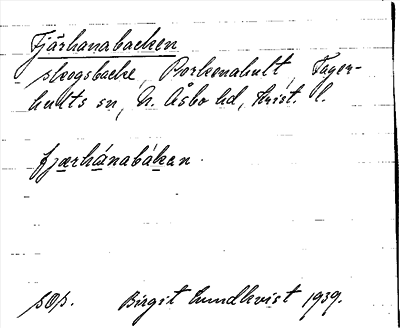 Tjärhanabacken
skogsbacke, Porkenahult, Fager-
hults sn, N. Åsbo hd, Krist. l.
fjærhánabákan.
sOp. Birgit Lundkvist 1939.